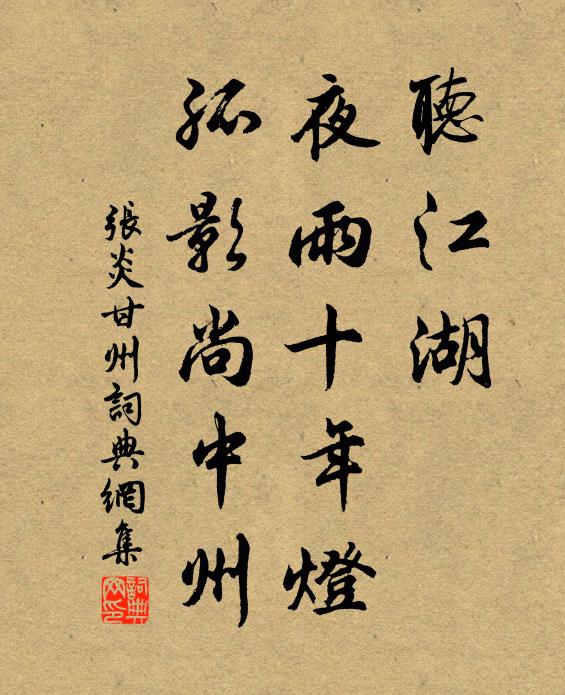 聽江湖
夜雨十年燈
孤影尚中州
張炎甘州詞典網集
詞典網印